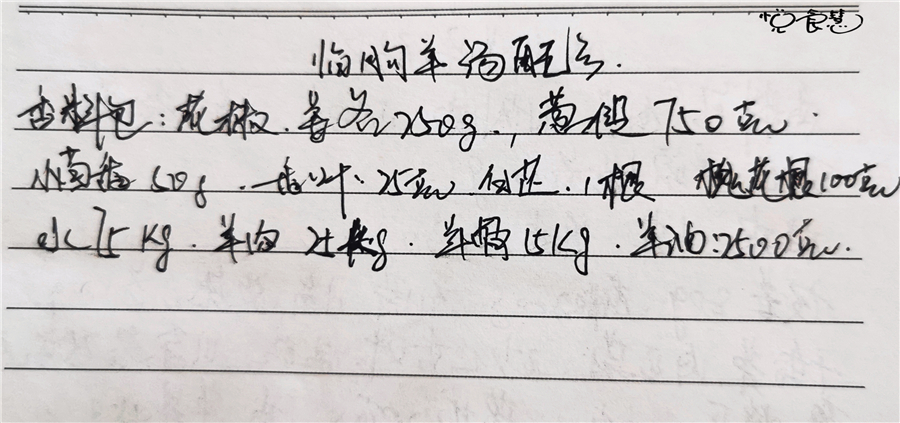 悦食慧
临朐羊汤配方.
香料包:花椒.姜各250g.,黄 750克.
小茴香50g. 25克 白芷.1根 100克
水75Kg.羊肉25kg.羊骨15Kg.羊油:2500克.